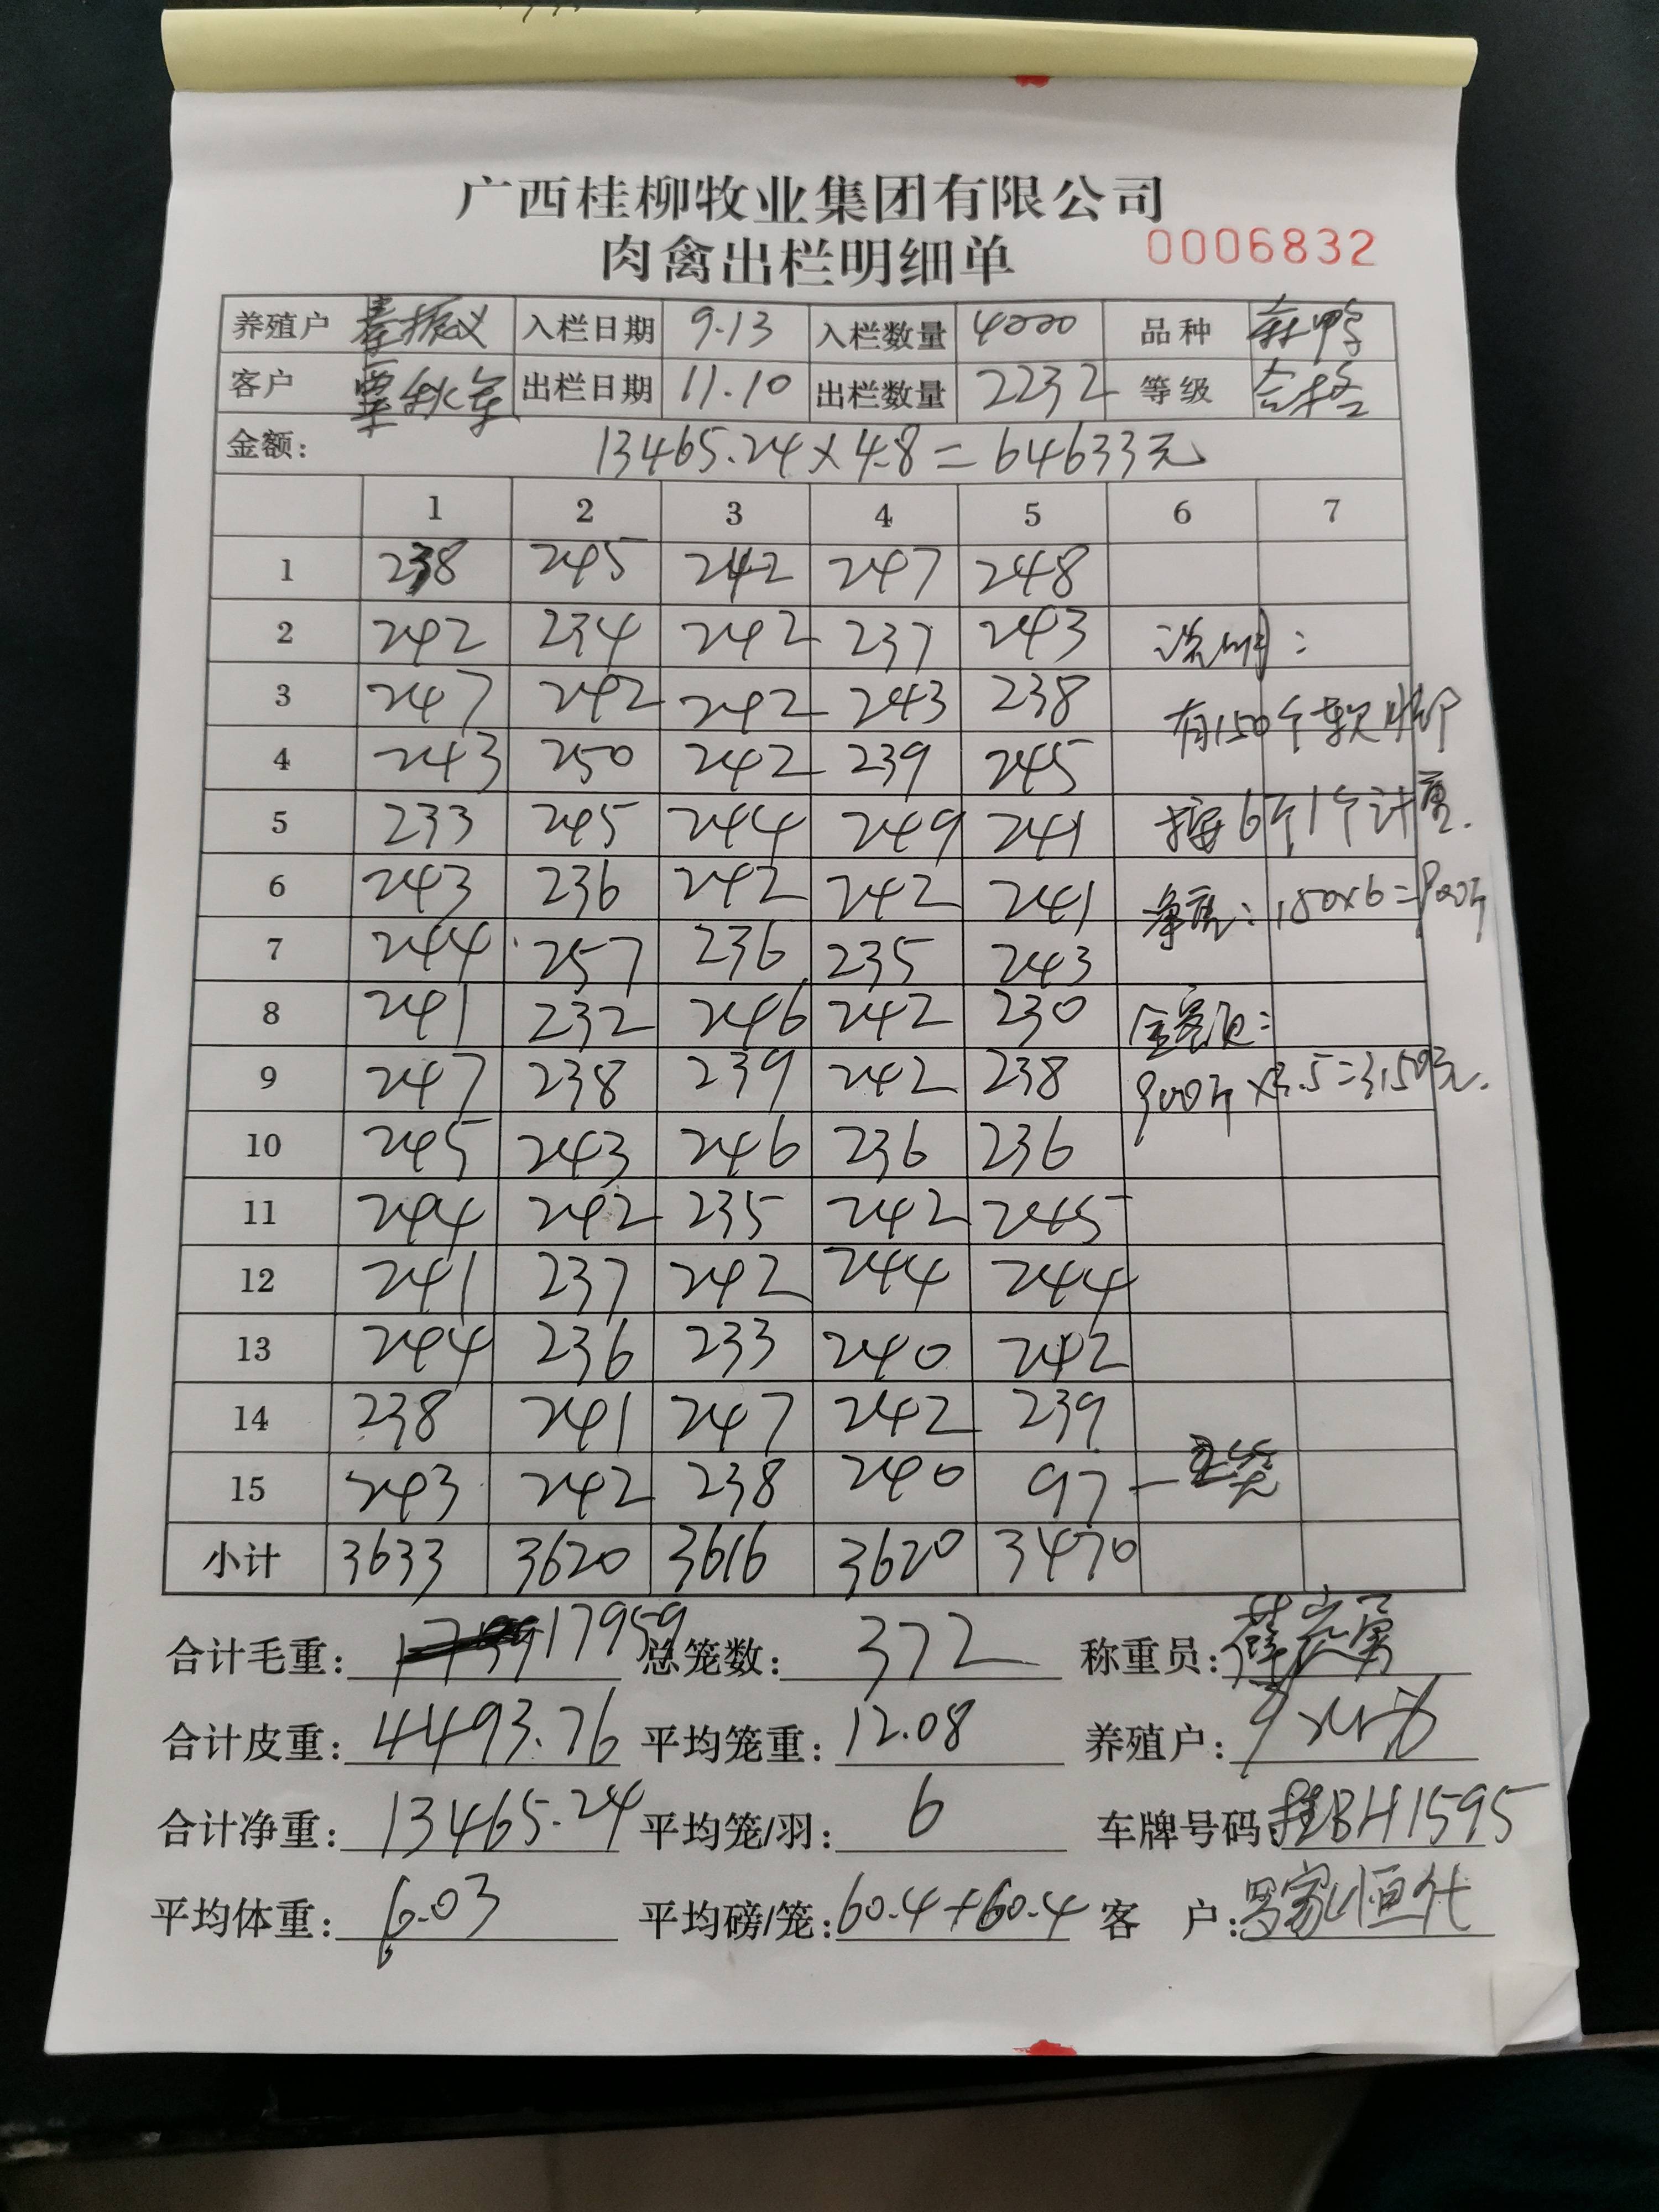 广西桂柳牧业集团有限公司
肉禽出栏明细单 0006832
养殖户 秦振议 入栏日期 9.13 入栏数量 4000 品种 麻鸭
客户 覃秋军 出栏日期 11.10 出栏数量 2232 等级 合格
金额: 13465.24×4.8=64633元
1 2 3 4 5 6 7
1 238 245 242 247 248
2 242 234 242 237 243 说明:
3 247 242 242 243 238 有150个软脚
4 243 250 242 239 245
5 233 245 244 249 241 按6斤1个计重.
6 243 236 242 242 241 净重:150×6=900斤
7 244 257 236 235 243
8 241 232 246 242 230 金额:
9 247 238 239 242 238 900斤×3.5=3150元.
10 245 243 246 236 236
11 244 242 235 242 245
12 241 237 242 244 244
13 244 236 233 240 242
14 238 241 247 242 239
15 243 242 238 240 97
小计 3633 3620 3616 3620 3470
合计毛重: 17959 总笼数: 372 称重员: 薛宏勇
合计皮重: 4493.76 平均笼重: 12.08 养殖户:
合计净重: 13465.24 平均笼/羽: 6 车牌号码 桂BH1595
平均体重: 6.03 平均磅/笼: 60.4+60.4 客 户: 罗家恒代